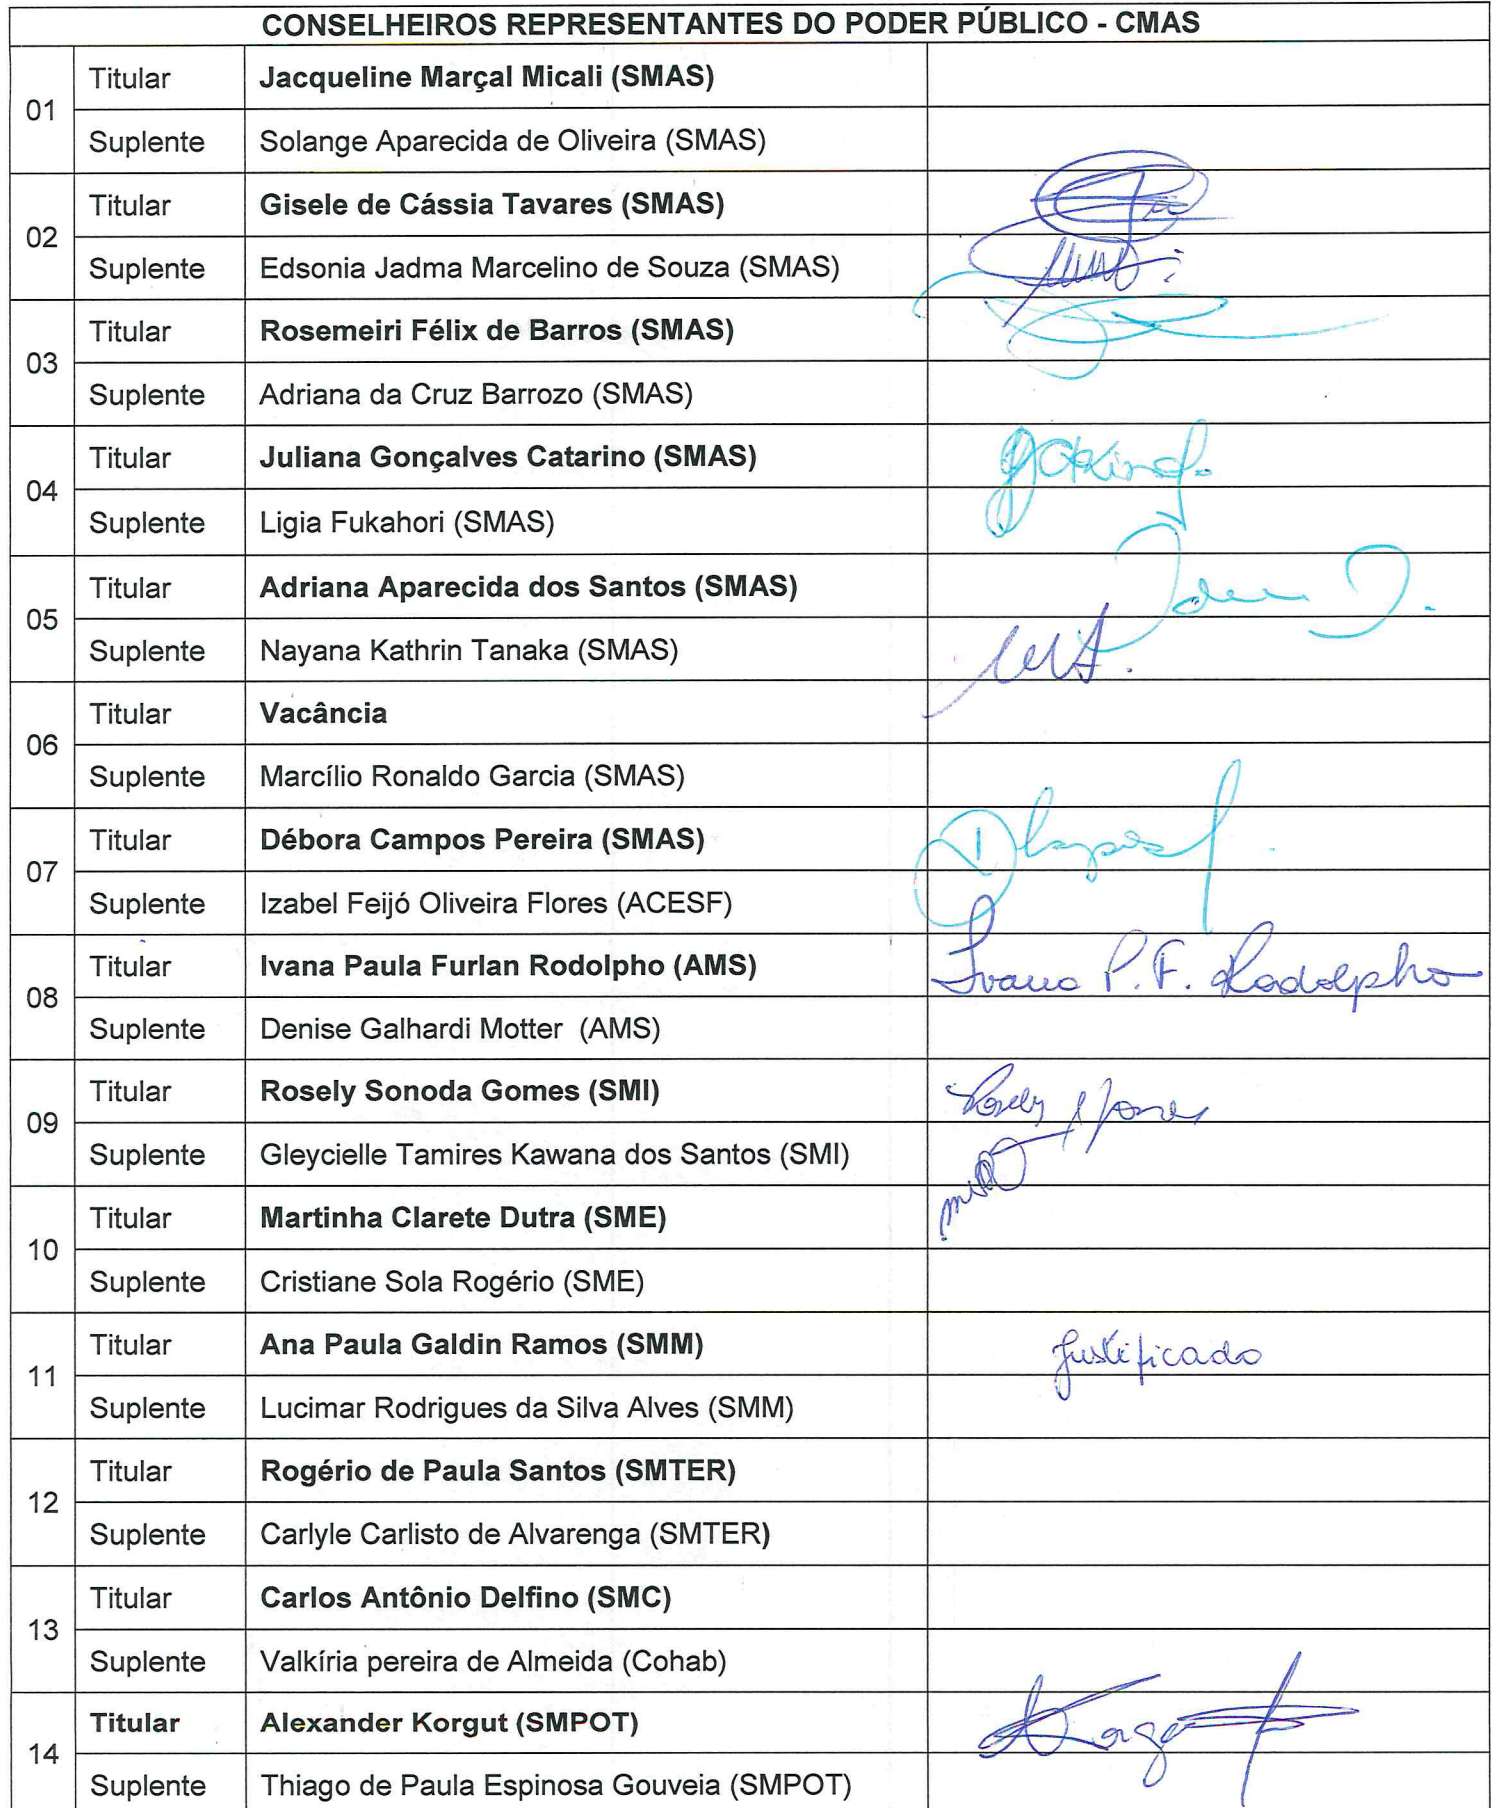 CONSELHEIROS REPRESENTANTES DO PODER PÚBLICO - CMAS
01 Titular Jacqueline Marçal Micali (SMAS)
Suplente Solange Aparecida de Oliveira (SMAS)
02 Titular Gisele de Cássia Tavares (SMAS)
Suplente Edsonia Jadma Marcelino de Souza (SMAS)
03 Titular Rosemeiri Félix de Barros (SMAS)
Suplente Adriana da Cruz Barrozo (SMAS)
04 Titular Juliana Gonçalves Catarino (SMAS)
Suplente Ligia Fukahori (SMAS)
05 Titular Adriana Aparecida dos Santos (SMAS)
Suplente Nayana Kathrin Tanaka (SMAS)
06 Titular Vacância
Suplente Marcílio Ronaldo Garcia (SMAS)
07 Titular Débora Campos Pereira (SMAS)
Suplente Izabel Feijó Oliveira Flores (ACESF)
08 Titular Ivana Paula Furlan Rodolpho (AMS) Ivana P. F. Rodolpho
Suplente Denise Galhardi Motter (AMS)
09 Titular Rosely Sonoda Gomes (SMI) Rosely
Suplente Gleycielle Tamires Kawana dos Santos (SMI)
10 Titular Martinha Clarete Dutra (SME)
Suplente Cristiane Sola Rogério (SME)
11 Titular Ana Paula Galdin Ramos (SMM) Justificado
Suplente Lucimar Rodrigues da Silva Alves (SMM)
12 Titular Rogério de Paula Santos (SMTER)
Suplente Carlyle Carlisto de Alvarenga (SMTER)
13 Titular Carlos Antônio Delfino (SMC)
Suplente Valkíria pereira de Almeida (Cohab)
14 Titular Alexander Korgut (SMPOT)
Suplente Thiago de Paula Espinosa Gouveia (SMPOT)